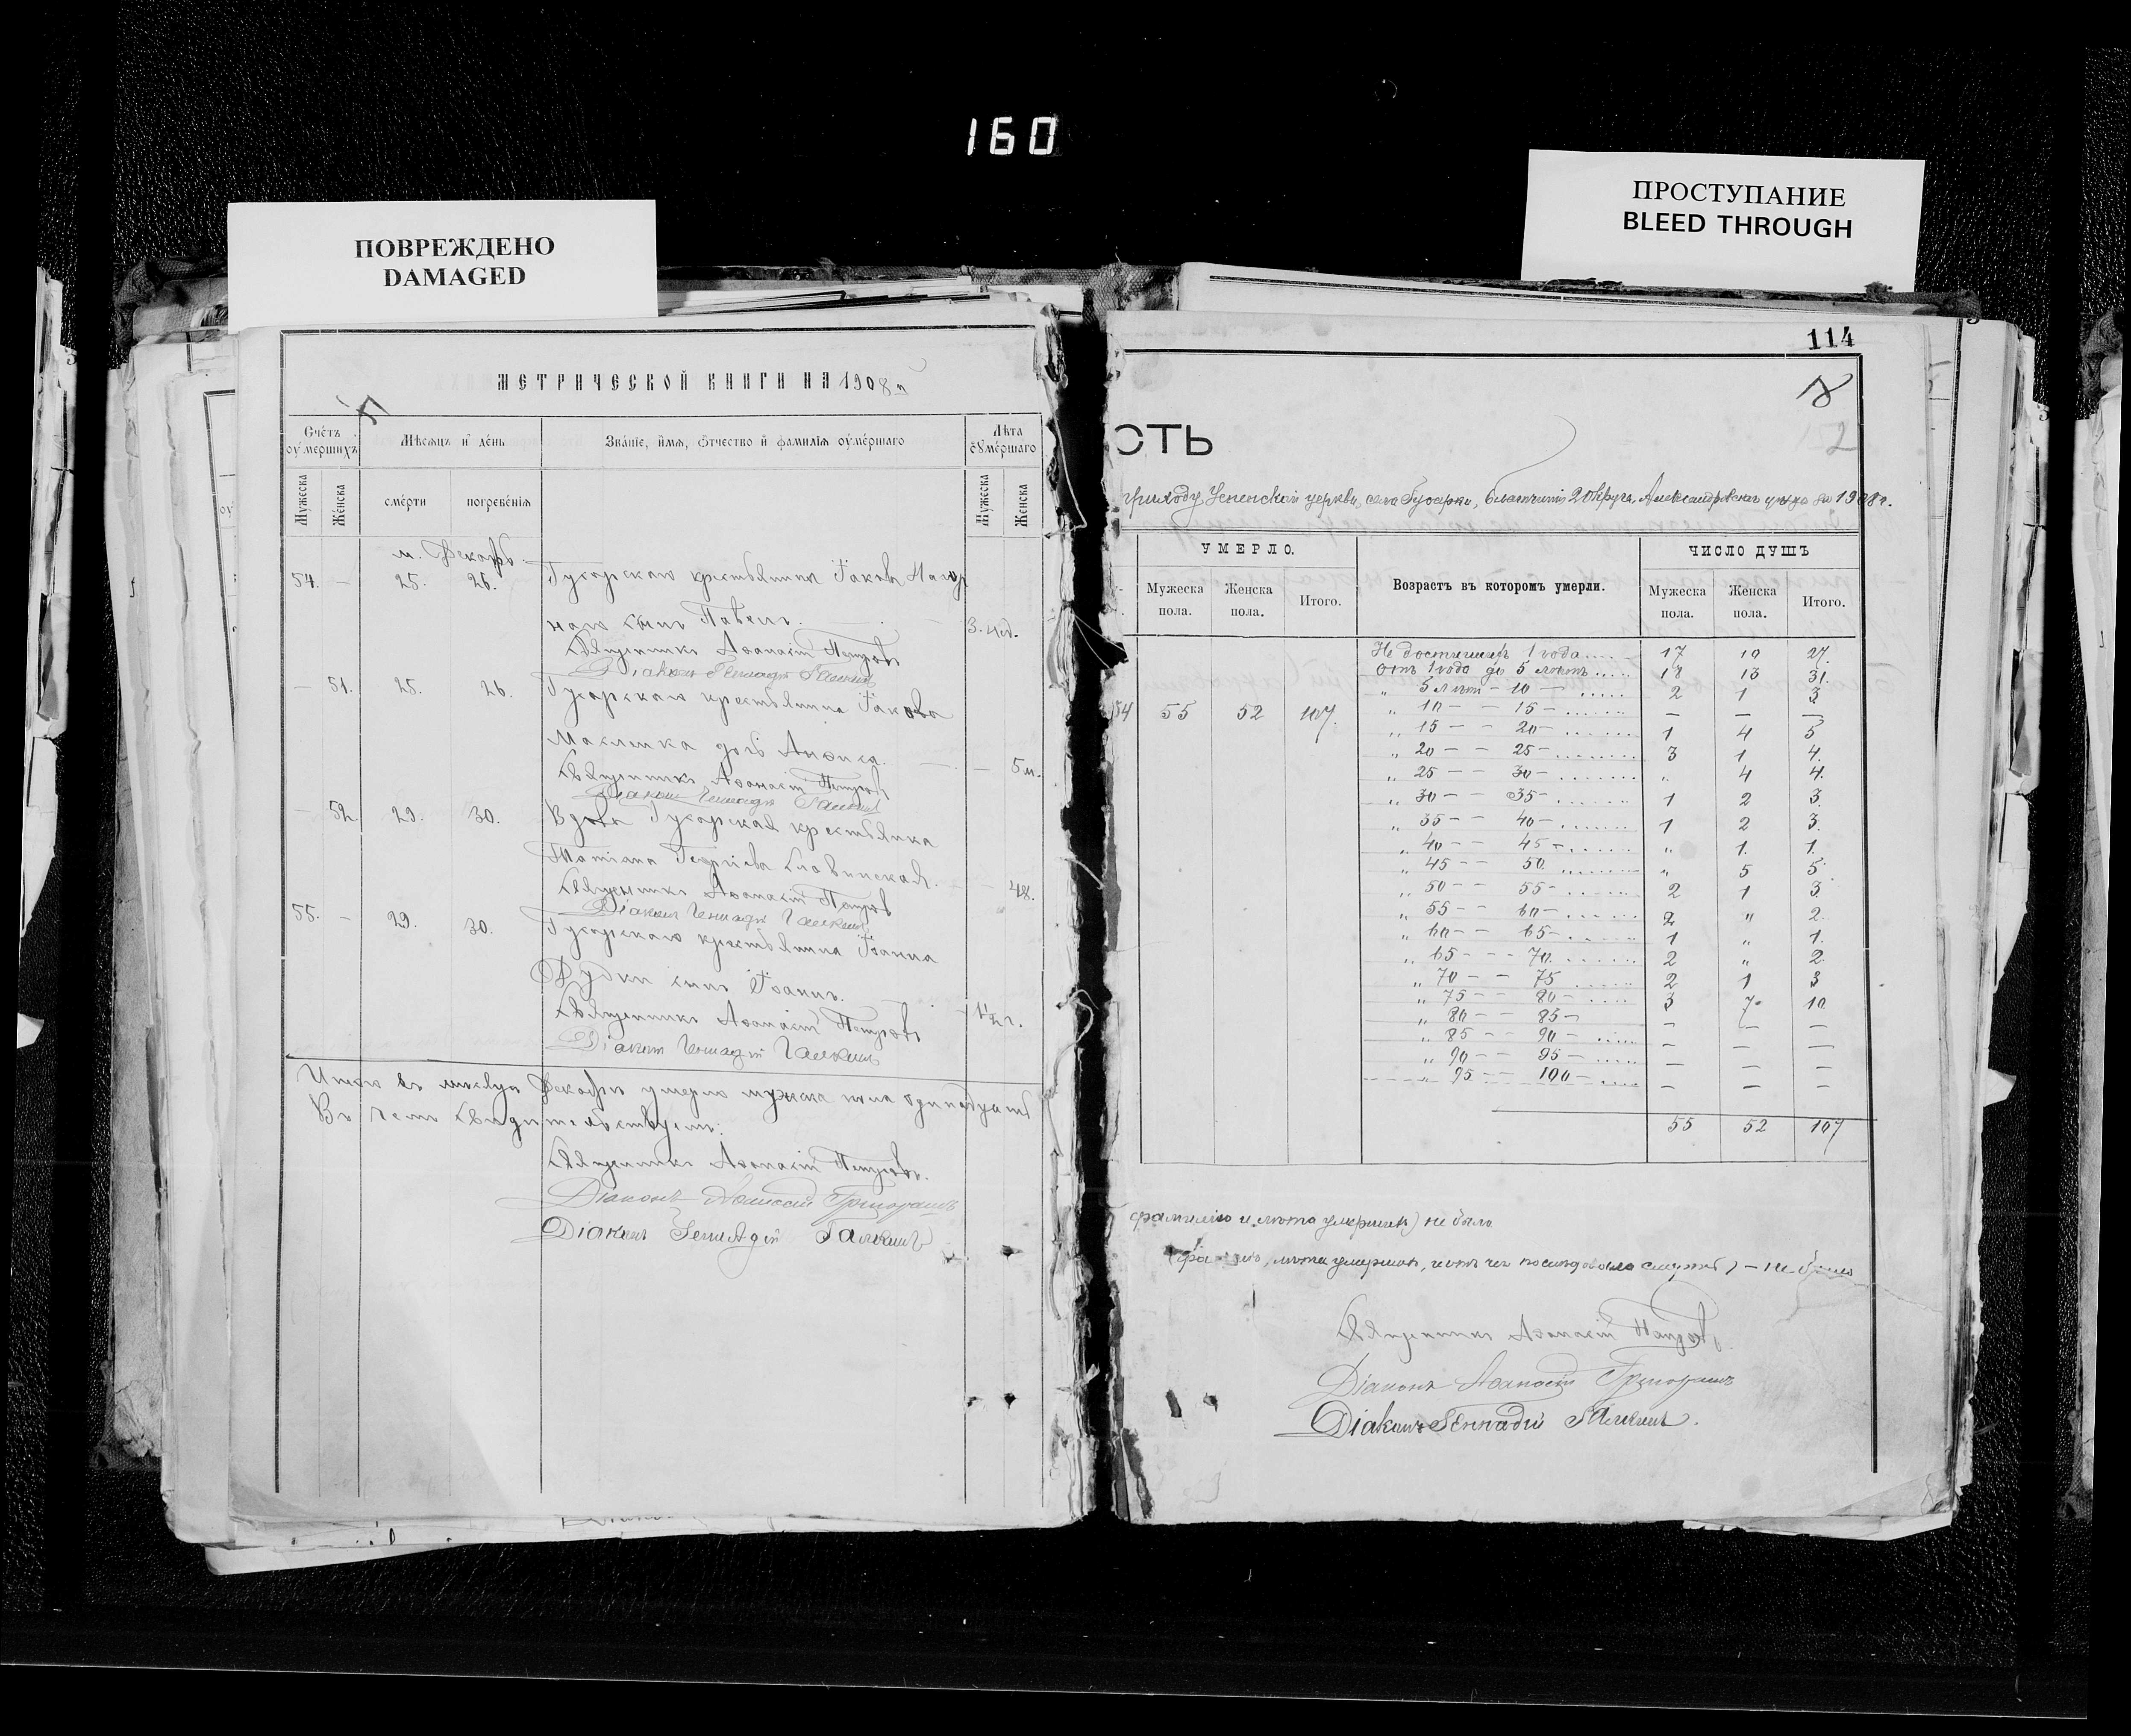 160
ПОВРЕЖДЕНО
DAMAGED
ПРОСТУПАНИЕ
BLEED THROUGH
МЕТРИЧЕСКОЙ КНИГИ НА 1908 г
Счетъ оумершихъ
Мѣсяцъ и день
Званіе, имя, отчество и фамилія оумершаго
Лѣта оумершаго
Мужеска
Женска
смерти
погребенія
Мужеска
Женска
м. Декабрь
54. — 25. 26. Гусарскаго крестьянина Іакова Нагор
наго сынъ Павелъ. 3. нед.
Священникъ Аѳанасій Петровъ
Діаконъ Геннадій Галкинъ
— 51. 25. 26. Гусарскаго крестьянина Іакова
дочь Анѳиса. — 5 м.
Священникъ Аѳанасій Петровъ
Діаконъ Геннадій Галкинъ
— 52 29. 30. Вдова Гусарская крестьянка
Татіана Георгіева Словинская. — 48.
Священникъ Аѳанасій Петровъ
Діаконъ Геннадій Галкинъ
55. — 29. 30. Гусарскаго крестьянина Іоанна
Дудки сынъ Іоаннъ. 1½ г.
Священникъ Аѳанасій Петровъ
Діаконъ Геннадій Галкинъ
Итого въ мѣсяцѣ Декабрѣ умерло мужска пола одинадцать
Въ чемъ свидѣтельствуемъ:
Священникъ Аѳанасій Петровъ.
Діаконъ Аѳанасій Григорашъ
Діаконъ Геннадій Галкинъ
114
2
ОСТЬ
приходу Успенской церкви, села Гусарки, благочинія 2 округа, Александровскаго уѣзда за 1908 г.
УМЕРЛО.
Возрастъ въ которомъ умерли.
ЧИСЛО ДУШЪ
Мужеска пола.
Женска пола.
Итого.
Мужеска пола.
Женска пола.
Итого.
Не достигшихъ 1 года.... 17 10 27.
Отъ 1 года до 5 лѣтъ..... 18 13 31.
„ 5 лѣтъ — 10 — ..... 2 1 3
54 55 52 107.
„ 10 — — 15 — ....... — — —
„ 15 — — 20 — ...... 1 4 5
„ 20 — — 25 — ........ 3 1 4.
„ 25 — — 30 — ....... „ 4 4.
„ 30 — — 35 — ....... 1 2 3.
„ 35 — — 40 — ....... 1 2 3.
„ 40 — — 45 — ...... „ 1. 1.
„ 45 — — 50. ........ „ 5 5.
„ 50 — — 55 — ....... 2 1 3.
„ 55 — — 60 — ...... 2 „ 2.
„ 60 — — 65 — ...... 1 „ 1.
„ 65 — — — 70. ....... 2 „ 2.
„ 70 — — 75 ...... 2 1 3
„ 75 — — 80 — .... 3 7 10
„ 80 — — 85 — — — —
„ 85 — — 90 — ..... — — —
„ 90 — — 95 — ..... — — —
„ 95 — — 100 — .... — — —
55 52 107
фамилію и лѣта умершихъ) не было
лѣта умершихъ, и отъ чего послѣдовала смерть) — не было
Священникъ Аѳанасій Петровъ
Діаконъ Аѳанасій Григорашъ
Діаконъ Геннадій Галкинъ.